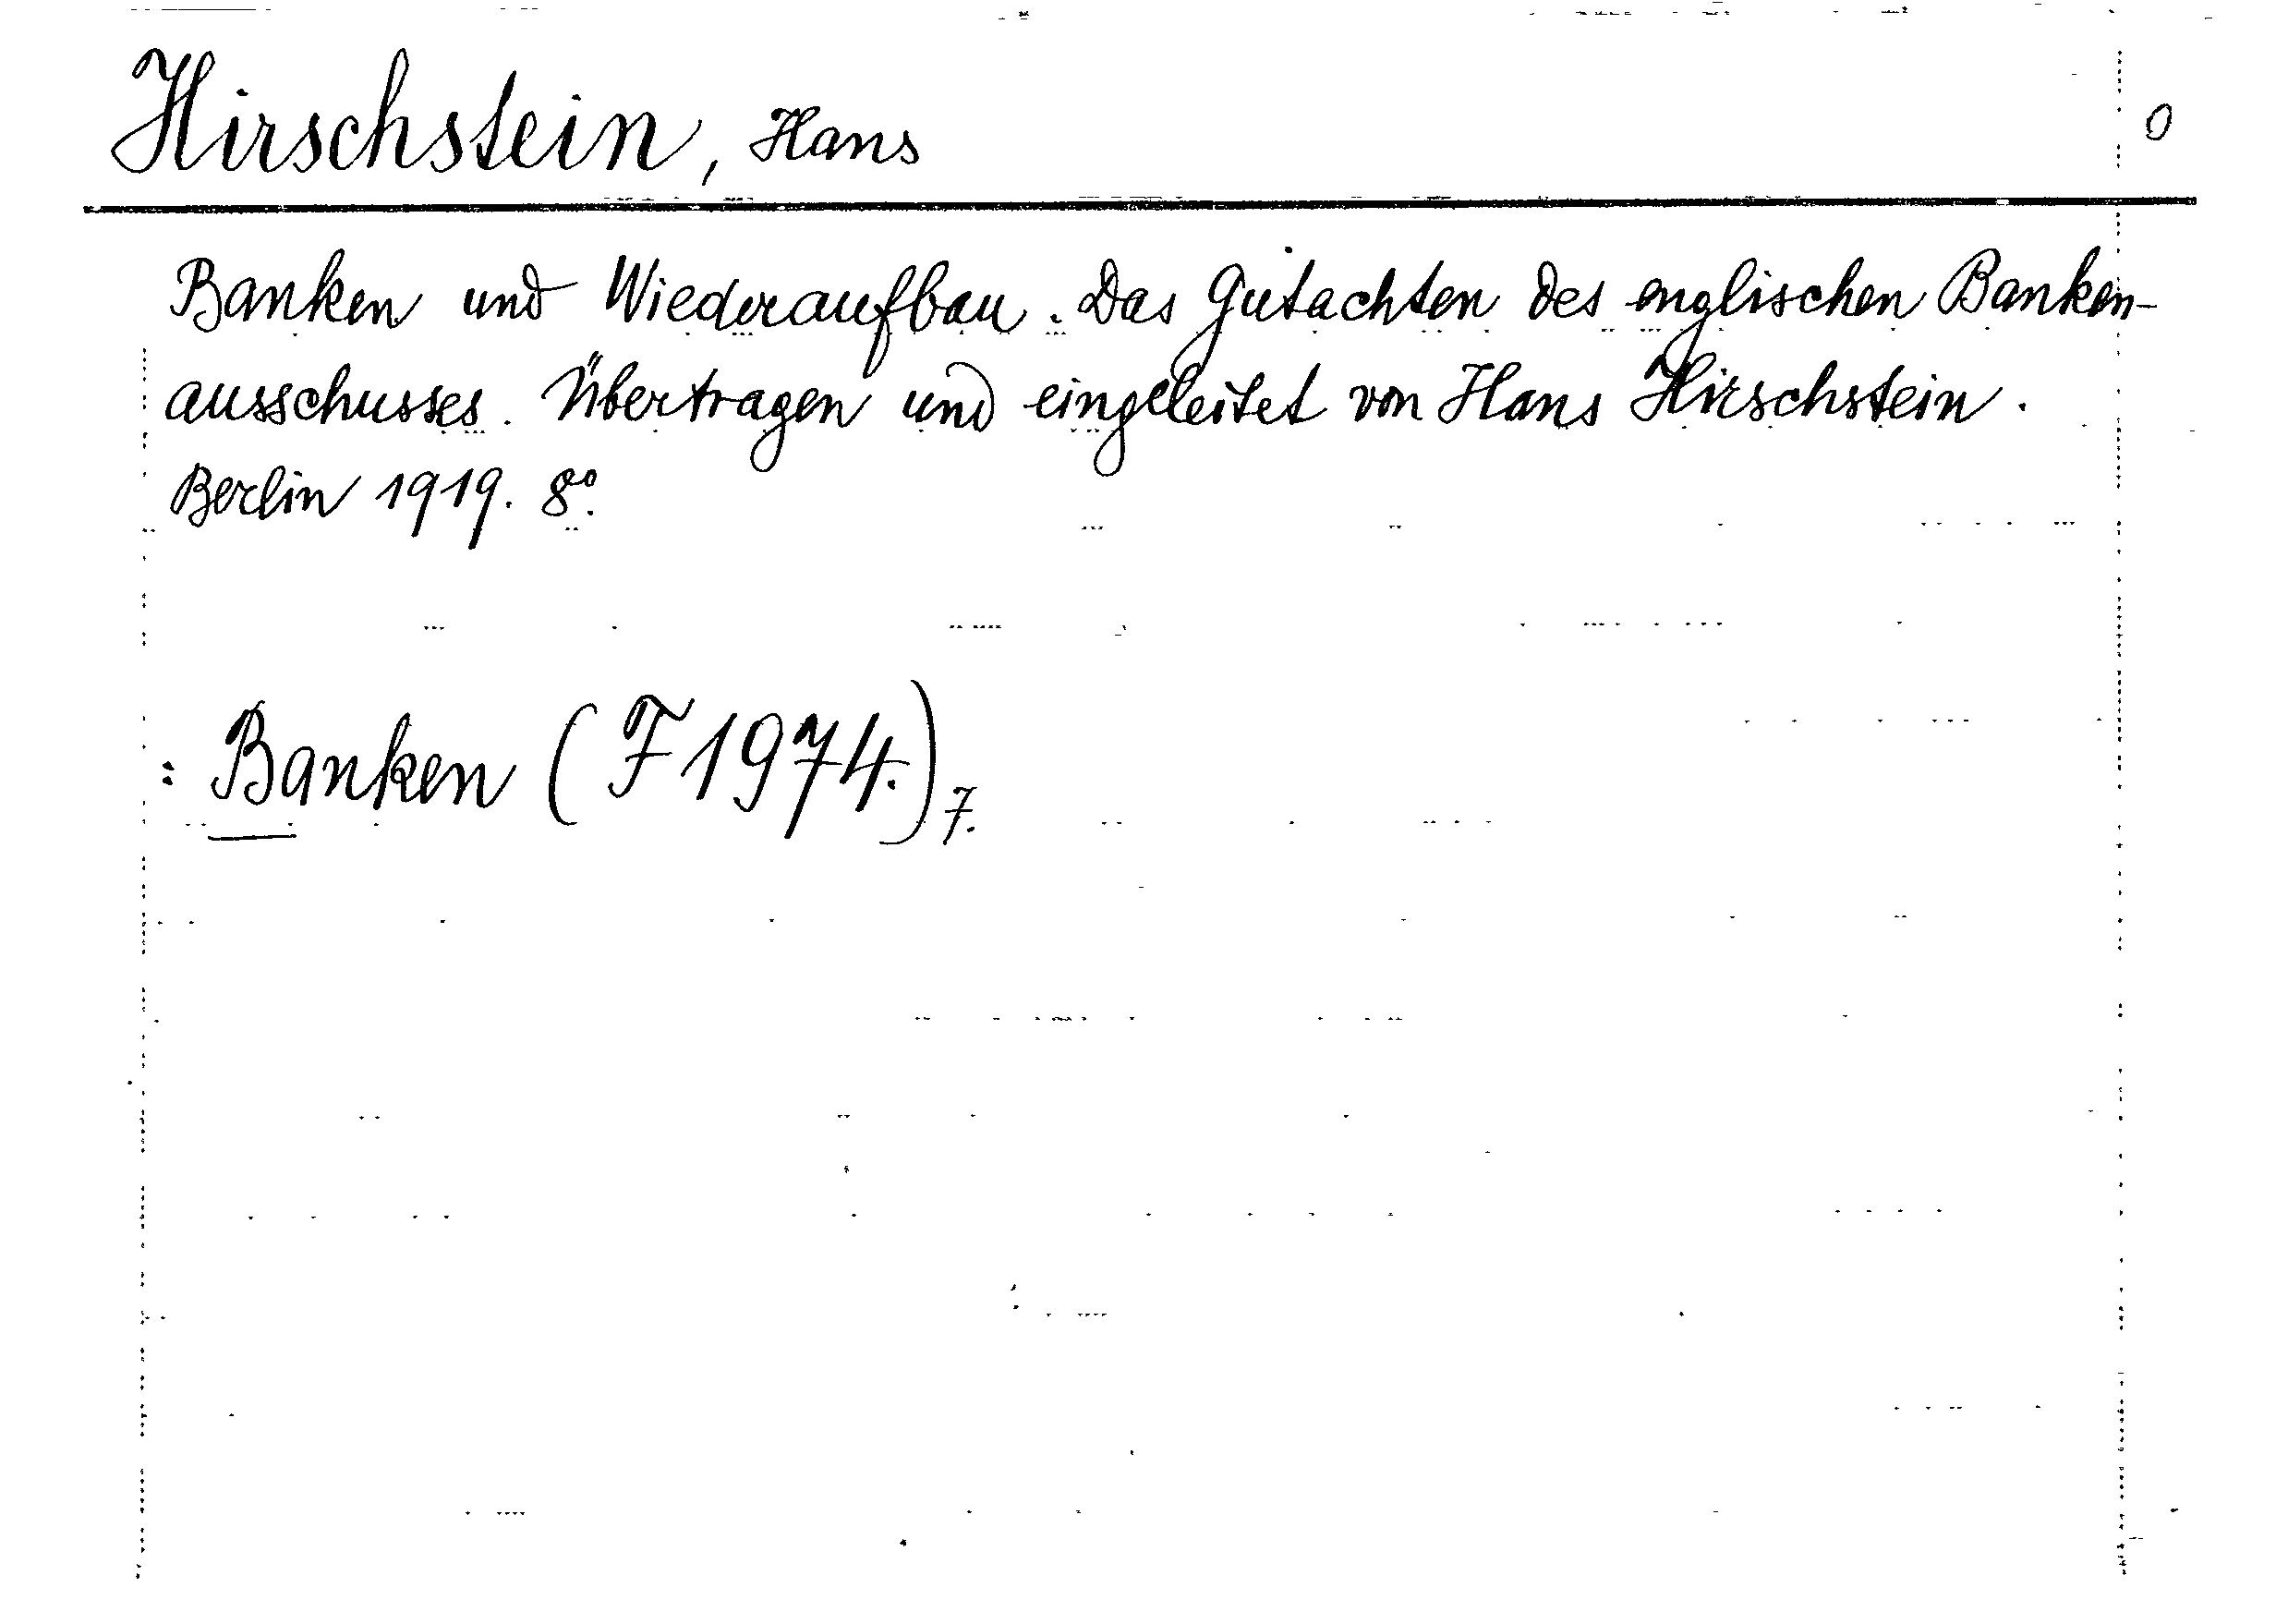 Hirschstein, Hans 0
Banken und Wiederaufbau. Das Gutachten des englischen Banken-
ausschusses. Übertragen und eingeleitet von Hans Hirschstein.
Berlin 1919. 8°.
: Banken (F 1974.) 7.